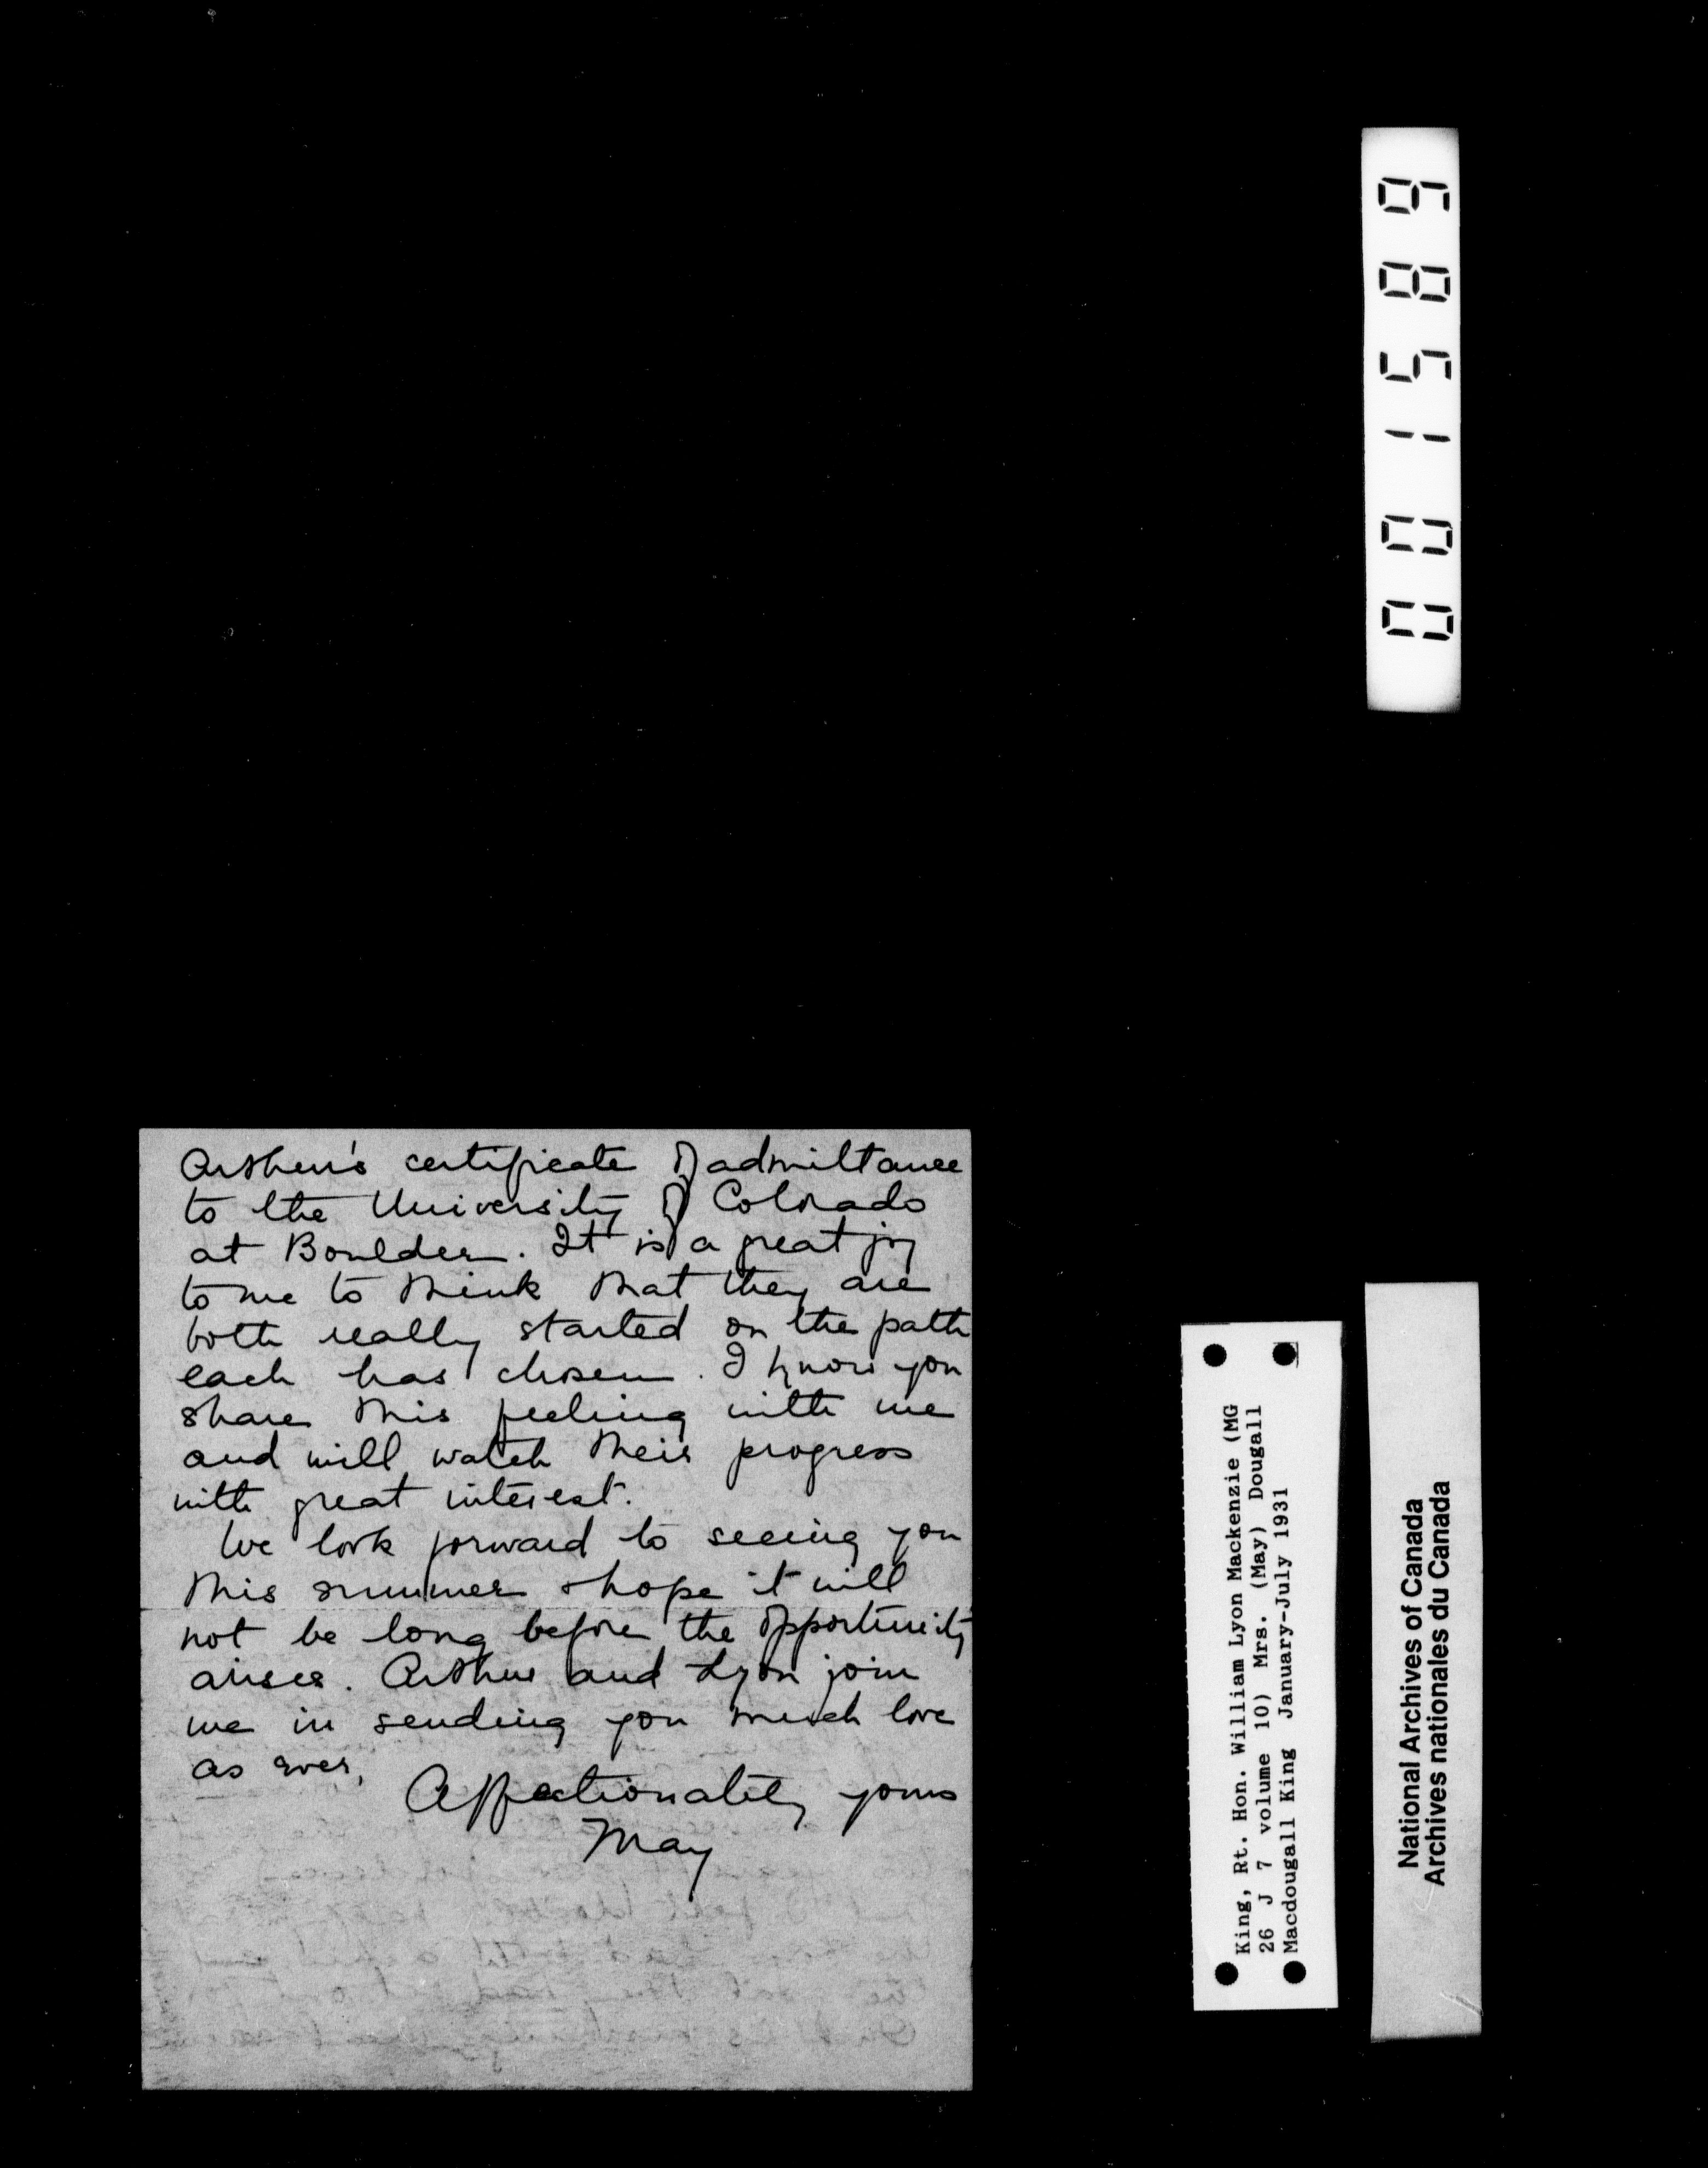 Arthur's certificate of admittance
to the University of Colorado
at Boulder. It is a great joy
to me to think that they are
both really started on the path
each has chosen. I know you
share this feeling with me
and will watch their progress
with great interest.
We look forward to seeing you
this summer & hope it will
not be long before the opportunity
arises. Arthur and Lyon join
me in sending you much love
as ever,
Affectionately yours
May
001589
King, Rt. Hon. William Lyon Mackenzie (MG
26 J 7 volume 10) Mrs. (May) Dougall
Macdougall King January-July 1931
National Archives of Canada
Archives nationales du Canada